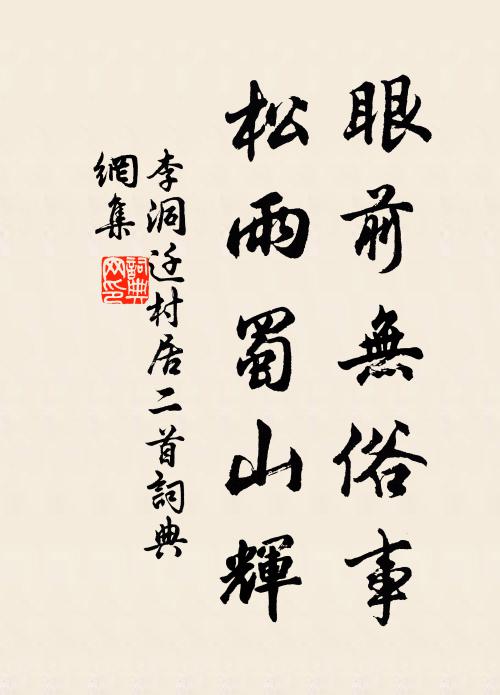 眼前無俗事
松雨蜀山輝
李洞迁村居二首詞典
網集
詞典
网印